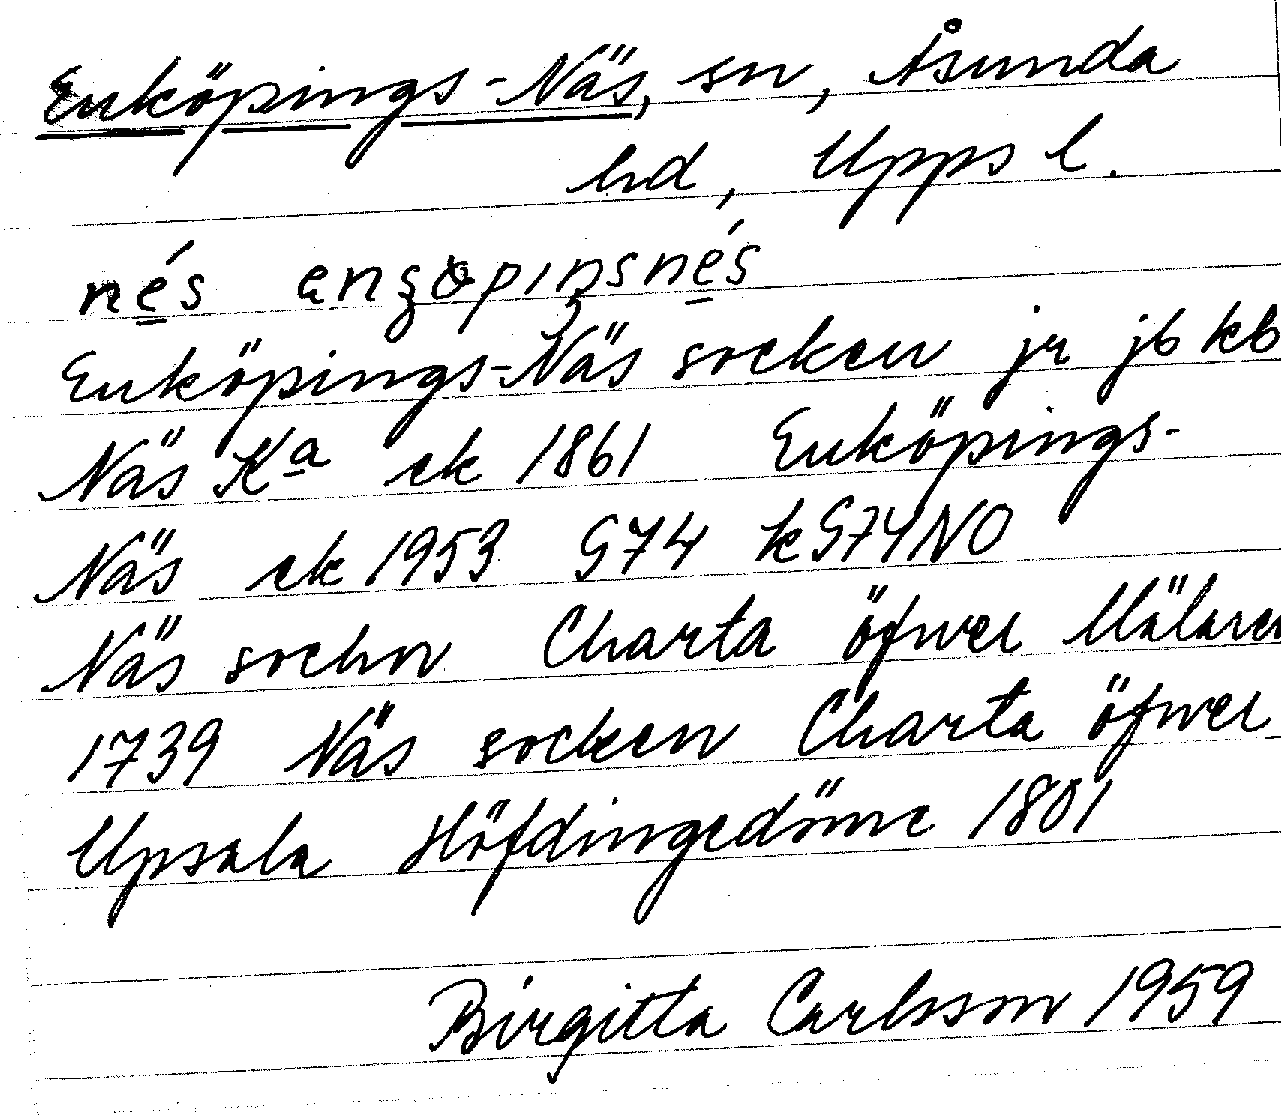 Enköpings-Näs, sn, Åsunda
hd, Upps l.
nés
Enköpings-Näs socken jr jb kb
Näs Kª ek 1861 Enköpings-
Näs ek 1953 G74 kG74NO
Näs sochn Charta öfwer Mälaren
1739 Näs socken Charta öfwer
Upsala Höfdingedöme 1801
Birgitta Carlsson 1959